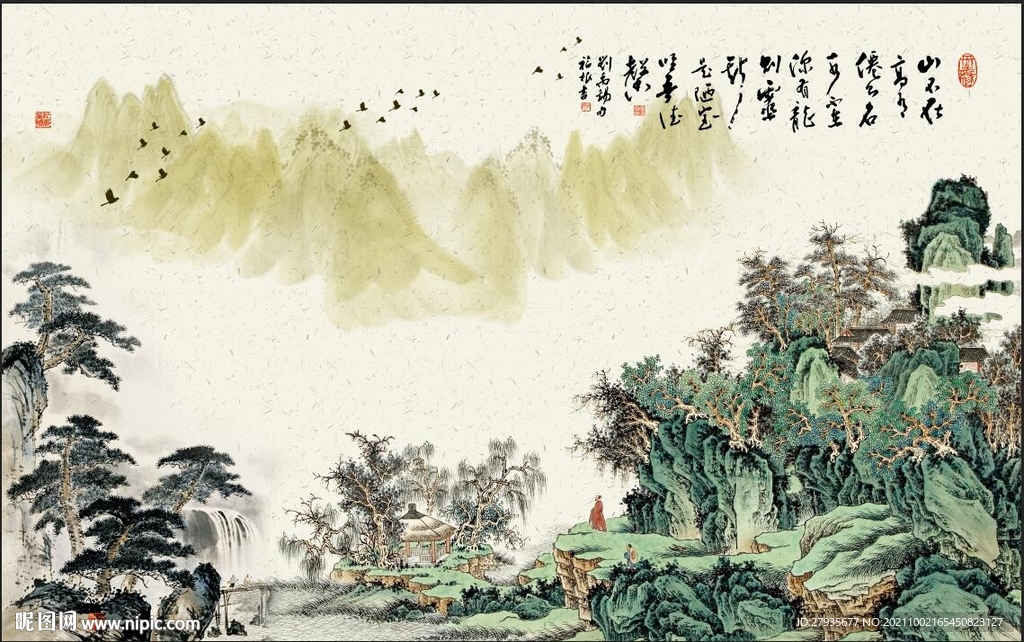 山不在
高有
僊則名
水不在
深有龍
則靈
斯
是陋室
惟吾德
馨
劉禹錫句
福根書
昵图网 www.nipic.com
ID:27935677 NO:20211002165450823127